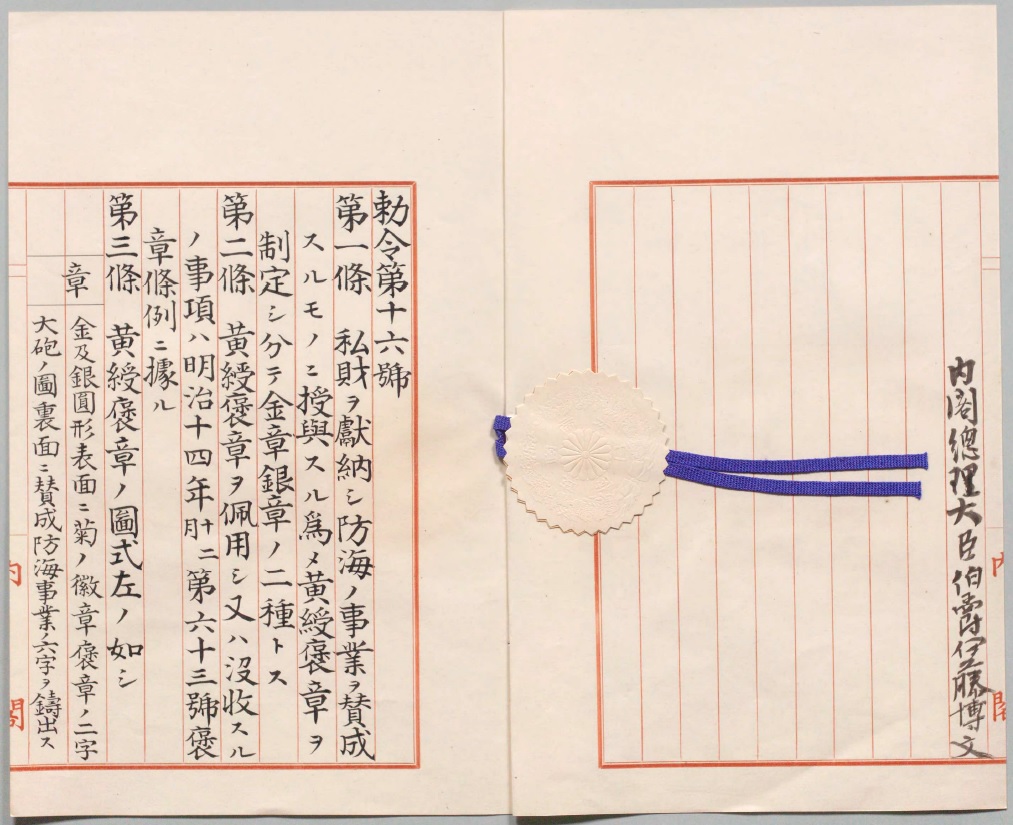 内閣總理大臣伯爵伊藤博文
内閣
勅令第十六號
第一條　私財ヲ獻納シ防海ノ事業ヲ賛成
スルモノニ授與スル爲メ黃綬褒章ヲ
制定シ分テ金章銀章ノ二種トス
第二條　黃綬褒章ヲ佩用シ又ハ沒收スル
ノ事項ハ明治十四年十二月第六十三號褒
章條例ニ據ル
第三條　黃綬褒章ノ圖式左ノ如シ
章
金及銀圓形表面ニ菊ノ徽章褒章ノ二字
大砲ノ圖裏面ニ賛成防海事業ノ六字ヲ鑄出ス
内閣